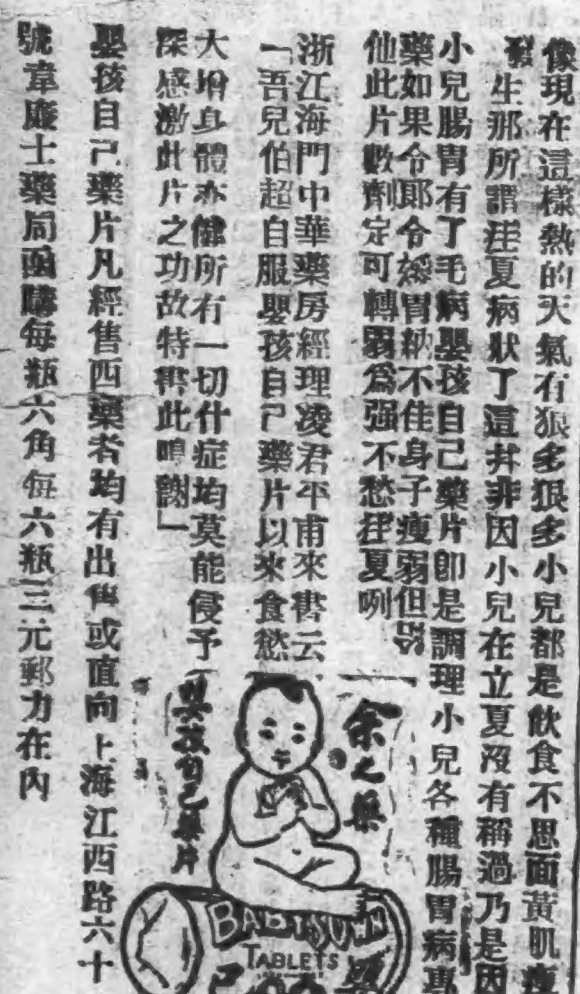 像現在這樣熱的天氣有狠多狠多小兒都是飲食不思面黃肌瘦
發生那所謂疰夏病狀了這幷非因小兒在立夏沒有稱過乃是因
小兒腸胃有了毛病嬰孩自己藥片卽是調理小兒各種腸胃病專
藥如果令郞令嬡胃納不佳身子瘦弱但
他此片數劑定可轉弱爲强不愁疰夏咧
浙江海門中華藥房經理凌君平甫來書云
「吾兒伯超自服嬰孩自己藥片以來食慾
大增身體亦健所有一切什症均莫能侵予
深感激此片之功故特書此鳴謝」
嬰孩自己藥片凡經售西藥者均有出售或直向上海江西路六十
號韋廉士藥局函購每瓶六角每六瓶三元郵力在內
余之藥
嬰孩自己藥片
BABY'S OWN
TABLETS